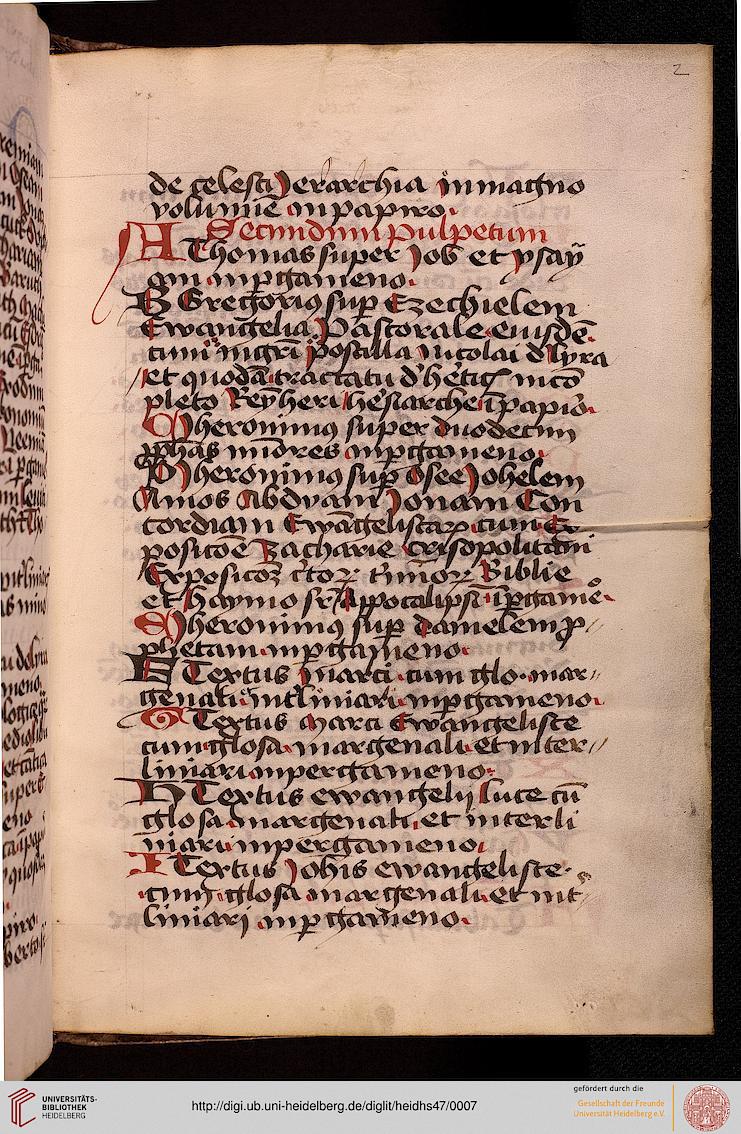 2
de celesti Jerarchia in magno
volumīe in papiro.
Secundum pulpetum
A Thomas super Job et ysay
am in pgameno.
B Gregoriꝯ sup Ezechielem
Ewangelia. Pastorale eiusdē.
Postilla Nicolai d lyra
et quodā tractatu d' nico
pleto Reyneri papiro.
Jheronimus super duodecim
pphās minores in pgameno.
Jheronimꝯ sup Osee Johelem
Amos Abdyam Jonam Con
cordiam Ewangelistarꝝ cum Ex
positōe Zacharie Crisopolitani
Expositōꝫ Biblie
et Haymo sr Appocalipsi i pgamēo.
Jheronimꝯ sup Danielem p//
phetam in pgameno.
Textus Marci cum glo. mar//
genali intliniari in pgameno.
G Textus Marci Ewangeliste
cum glosa margenali et inter//
liniari in pergameno.
H Textus ewangelij Luce cū
glosa margenali et interli
niari in pergameno.
I Textus Johis ewangeliste.
cum glosa margenali et int
liniari in pgameno.
UNIVERSITÄTS-
BIBLIOTHEK
HEIDELBERG
http://digi.ub.uni-heidelberg.de/diglit/heidhs47/0007
gefördert durch die
Gesellschaft der Freunde
Universität Heidelberg e.V.